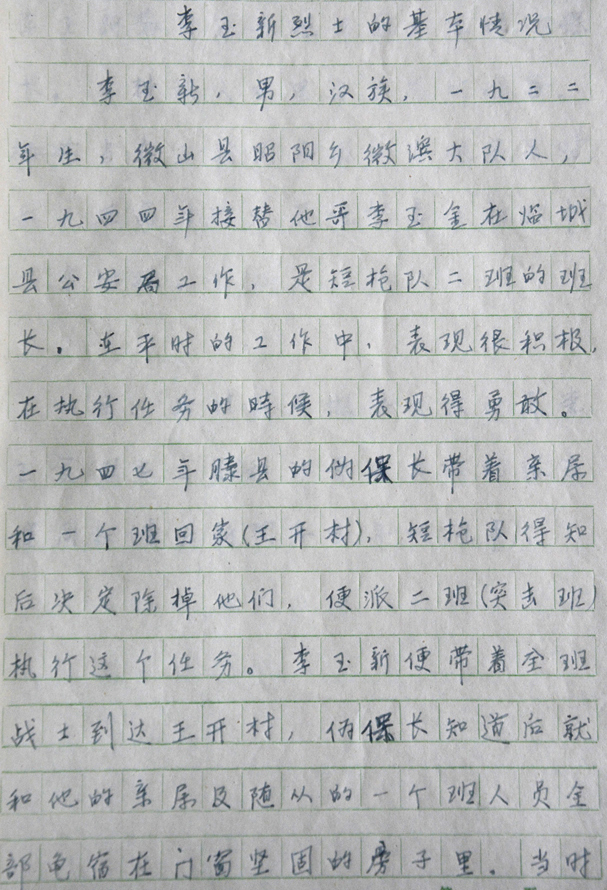 李玉新烈士的基本情况
李玉新,男,汉族,一九二二
年生,微山县昭阳乡微滨大队人,
一九四四年接替他哥李玉金在临城
县公安局工作,是短枪队二班的班
长。在平时的工作中,表现很积极,
在执行任务的時候,表现得勇敢。
一九四七年滕县的伪保长带着亲属
和一个班回家(王开村),短枪队得知
后决定除掉他们,便派二班(突击班)
执行这个任务。李玉新便带着全班
战士到达王开村,伪保长知道后就
和他的亲属及随从的一个班人员全
部龟宿在门窗坚固的房子里。当时